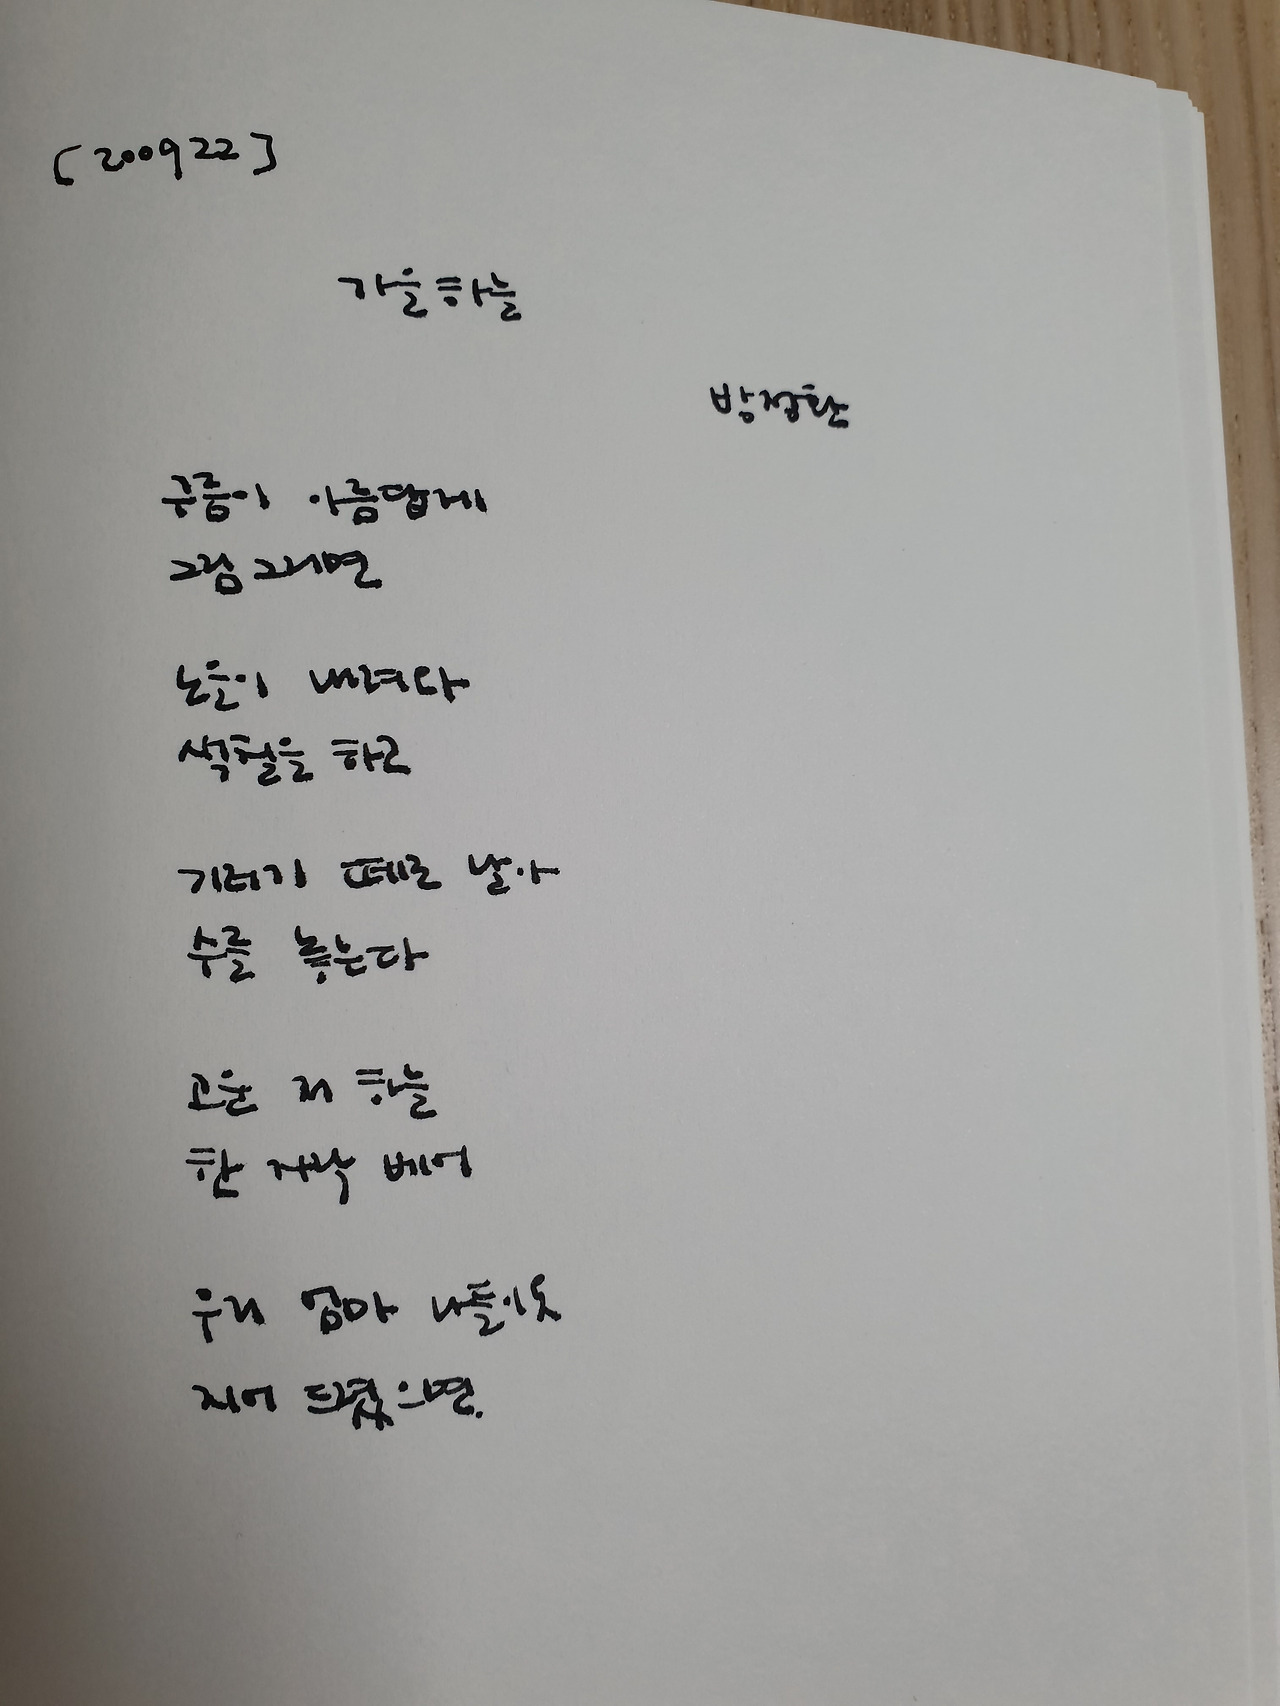 [200922]
가을 하늘
방정환
구름이 아름답게
그림 그리면
노을이 내려다
색칠을 하고
기러기 떼로 날아
수를 놓는다
고운 저 하늘
한 자락 베어
우리 엄마 나들이옷
지어 드렸으면.